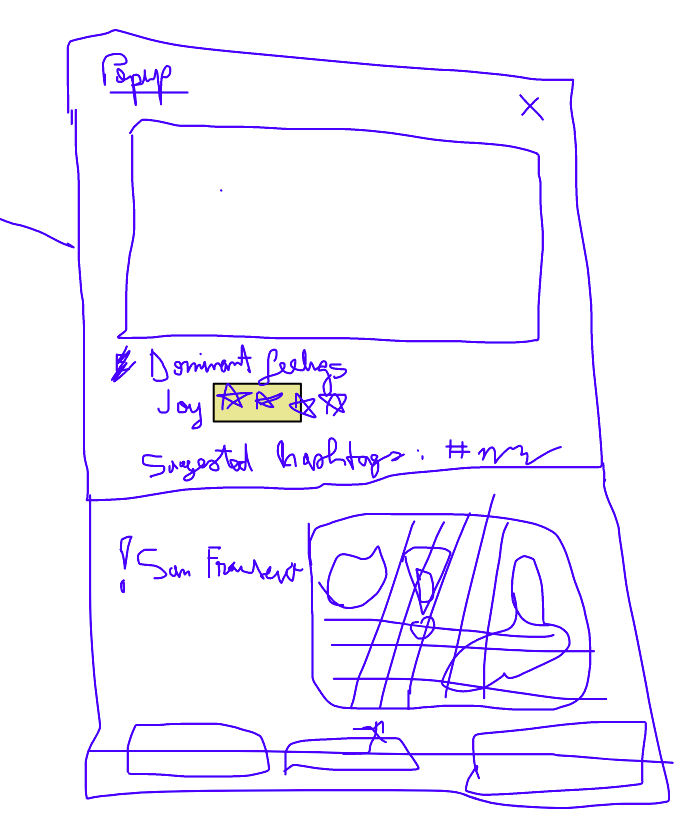 Popup
X
Dominant feelings
Joy
Suggested hashtags : #
! San